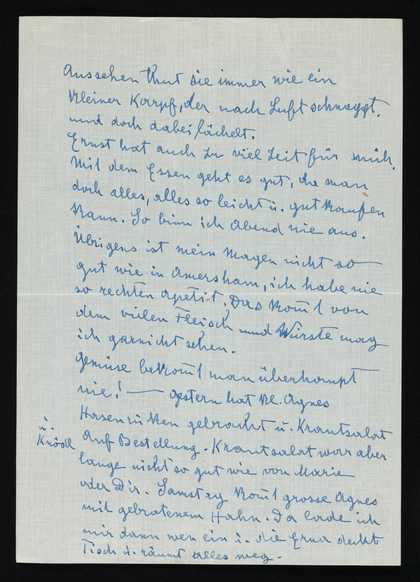 Aussehen thut sie immer wie ein
kleiner Karpf, der nach Luft schnappt.
und doch dabei lächelt.
Ernst hat auch zu viel Zeit für mich.
Mit dem Essen geht es gut, da man
doch alles, alles so leicht u. gut kaufen
kann. So binn ich Abend nie aus.
Übrigens ist mein Magen nicht so
gut wie in Amersham, ich habe nie
so rechten Apetit. Das Kommt von
dem vielen Fleisch und Würste mag
ich garnicht sehen.
Gemüse bekommt man überhaupt
nie! — Gestern hat kl. Agnes
Hasenrücken gebracht u. Krautsalat
u.
Knödl
auf Bestellung. Krautsalat warr aber
lange nicht so gut wie von Marie
oder Dir. Samstag kommt grosse Agnes
mit gebratenem Hahn. Da lade ich
mir dann wen ein : die Erna deckt
Tisch u. räumt alles weg.